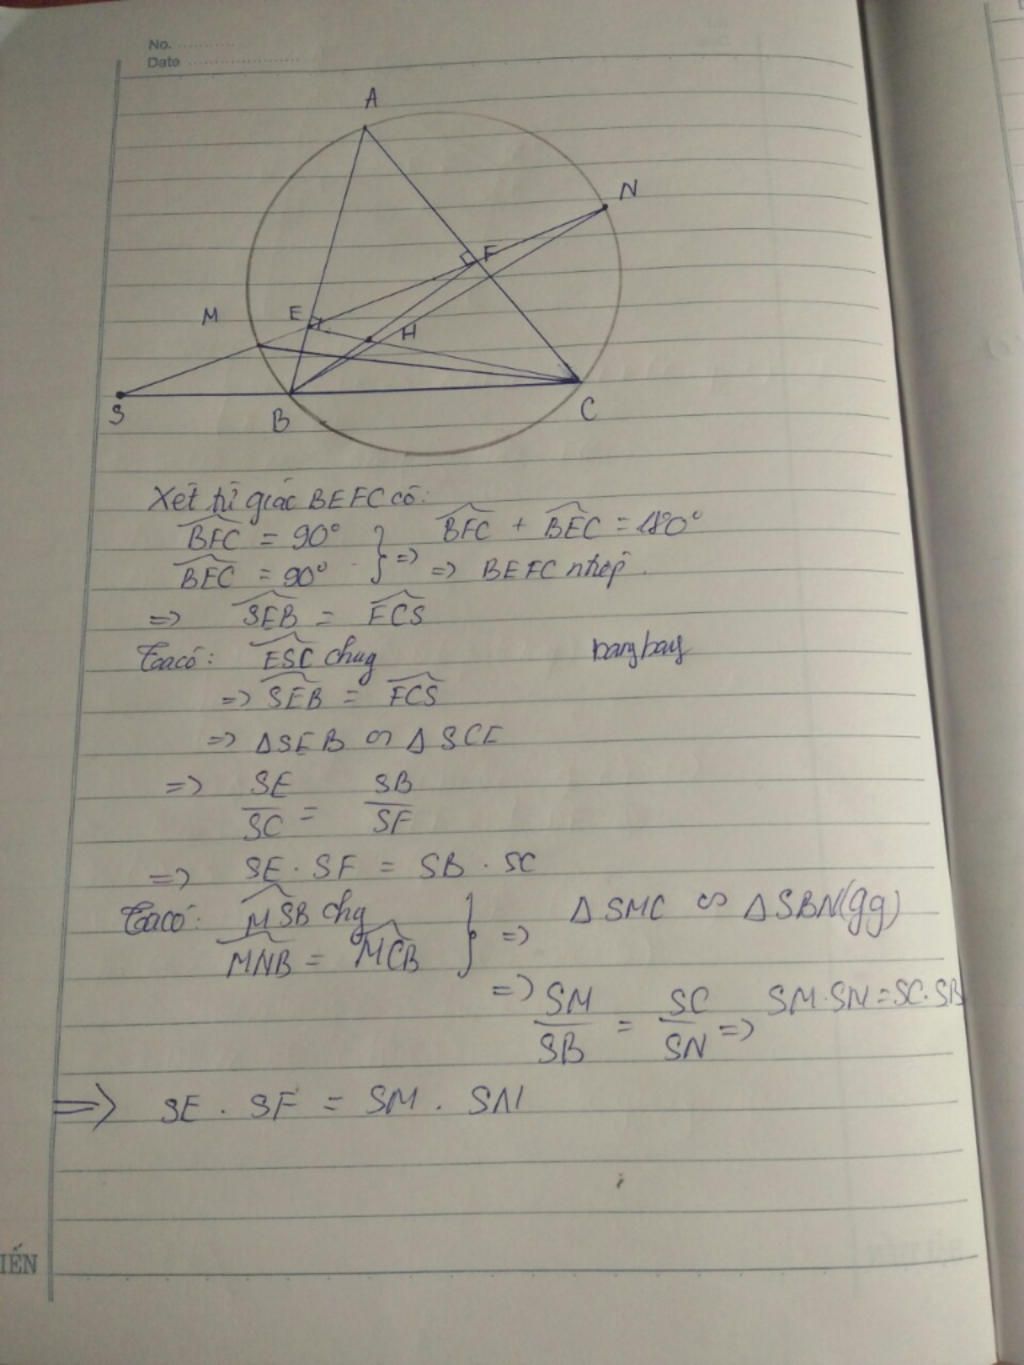 No.
Date
A
N
F
E
M
H
S
B
C
Xét tứ giác BEFC có:
BFC = 90°
BEC = 90°
} => BFC + BEC = 180°
=> BEFC ntiếp.
=> SEB = FCS
Ta có: ESC chug
=> SEB = FCS
=> ΔSEB ∽ ΔSCF
=> SE/SC = SB/SF
=> SE . SF = SB . SC
Ta có: MSB chg
MNB = MCB
} => ΔSMC ∽ ΔSBN(gg)
=> SM/SB = SC/SN => SM.SN=SC.SB
=> SE . SF = SM . SN
IẾN